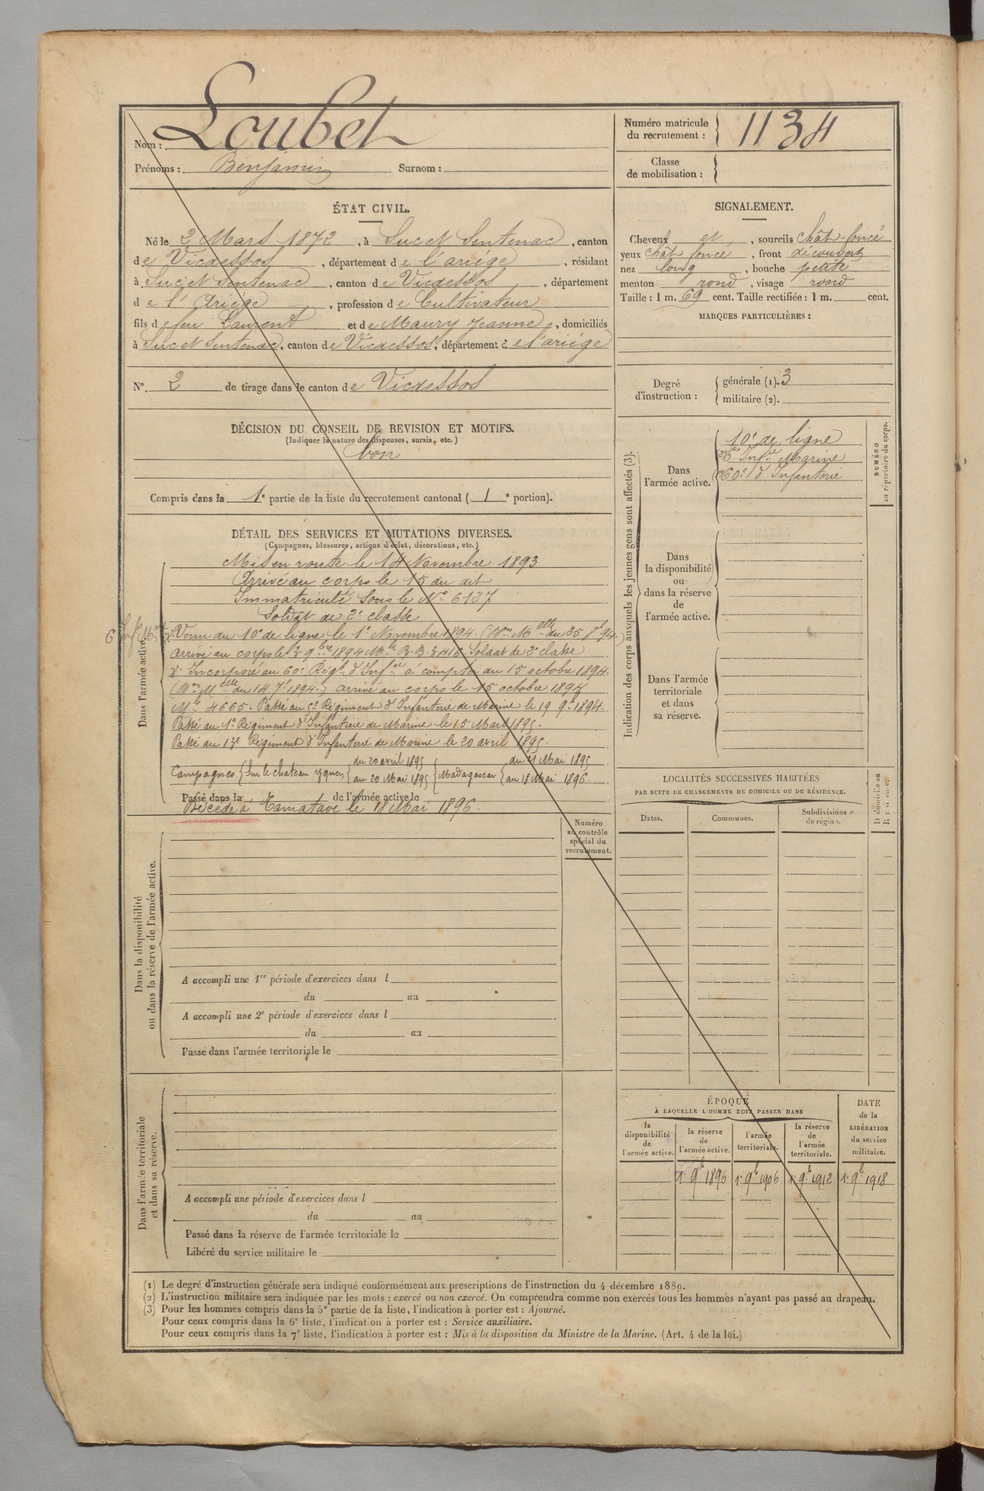 Nom : Loubet
Prénoms : Benjamin Surnom :
Numéro matricule du recrutement : 1134
Classe de mobilisation :
ÉTAT CIVIL.
Né le 2 Mars 1872, à Suc et Sentenac, canton
de Vicdessos, département de l'ariége, résidant
à Suc et Sentenac, canton de Vicdessos, département
de l'Ariège, profession de Cultivateur
fils de feu Laurent et de Maury Jeanne, domiciliés
à Suc et Sentenac, canton de Vicdessos, département de l'ariége
N° 2 de tirage dans le canton de Vicdessos
SIGNALEMENT.
Cheveux et, sourcils chât-foncé
yeux chât foncé, front découvert
nez long, bouche petite
menton rond, visage rond
Taille : 1 m. 69 cent. Taille rectifiée : 1 m. cent.
MARQUES PARTICULIÈRES :
Degré d'instruction : générale (1). 3
militaire (2).
DÉCISION DU CONSEIL DE REVISION ET MOTIFS.
(Indiquer la nature des dispenses, sursis, etc.)
bon
Compris dans la 1e partie de la liste du recrutement cantonal (1e portion).
DÉTAIL DES SERVICES ET MUTATIONS DIVERSES.
(Campagnes, blessures, actions d'éclat, décorations, etc.)
Dans l'armée active.
Mis en route le 14 Novembre 1893
Arrivé au corps le 15 du dit
Immatriculé sous le No 6137
Soldat de 2e classe
Venu du 10e de ligne le 1e Novembre 1894.
arrivé au corps le 1894 Soldat de 2e classe
Incorporé au 60e Régt d'Infie à compter du 15 octobre 1894.
arrivé au corps le 15 octobre 1894
Mle 4665. Passé au Régiment d'Infanterie de Marine le 19 9e 1894.
Passé au 1e Régiment d'Infanterie de Marine le 15 Mars 1895.
Passé au 13e Régiment d'Infanterie de Marine le 20 avril 1895.
Campagnes { Sur le chateau yquem { du 20 avril 1895 au 20 Mai 1895 { Madagascar { au 18 Mai 1896.
Passé dans la de l'armée active le
Décédé à Tamatave le 18 Mai 1896.
Numéro au contrôle spécial du recrutement.
Dans la disponibilité ou dans la réserve de l'armée active.
A accompli une 1re période d'exercices dans l
du au
A accompli une 2e période d'exercices dans l
du au
Passé dans l'armée territoriale le
Dans l'armée territoriale et dans sa réserve.
A accompli une période d'exercices dans l
du au
Passé dans la réserve de l'armée territoriale le
Libéré du service militaire le
Indication des corps auxquels les jeunes gens sont affectés (3).
Dans l'armée active.
10e de ligne
Infie Marine
60e d'Infanterie
NUMÉRO au répertoire du corps.
Dans la disponibilité ou dans la réserve de l'armée active.
Dans l'armée territoriale et dans sa réserve.
LOCALITÉS SUCCESSIVES HABITÉES
PAR SUITE DE CHANGEMENTS DE DOMICILE OU DE RÉSIDENCE.
Dates. Communes. Subdivisions de région. D. domicile ou R. résidence.
ÉPOQUE
À LAQUELLE L'HOMME DOIT PASSER DANS
la disponibilité de l'armée active.
la réserve de l'armée active.
l'armée territoriale.
la réserve de l'armée territoriale.
DATE de la LIBÉRATION du service militaire.
1e 9e 1896 1e 9e 1906 1e 9e 1912 1e 9e 1918
(1) Le degré d'instruction générale sera indiqué conformément aux prescriptions de l'instruction du 4 décembre 1889.
(2) L'instruction militaire sera indiquée par les mots : exercé ou non exercé. On comprendra comme non exercés tous les hommes n'ayant pas passé au drapeau.
(3) Pour les hommes compris dans la 5e partie de la liste, l'indication à porter est : Ajourné.
Pour ceux compris dans la 6e liste, l'indication à porter est : Service auxiliaire.
Pour ceux compris dans la 7e liste, l'indication à porter est : Mis à la disposition du Ministre de la Marine. (Art. 4 de la loi.)